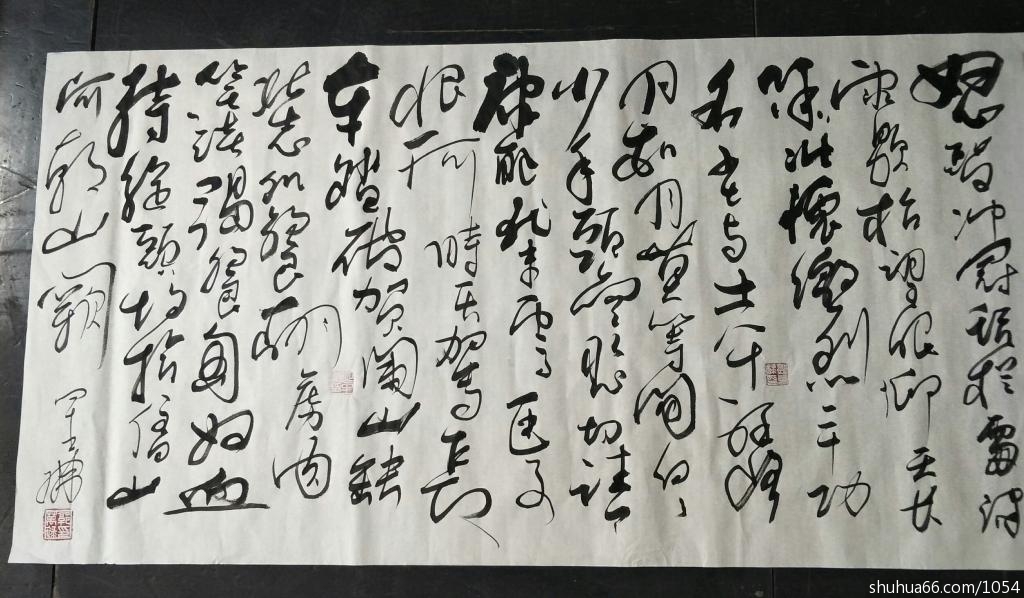 怒髮冲冠凭栏處潇
雨歇抬望眼仰天长
啸壮懷激烈三十功
名尘与土八千
月和月莫等闲白了
少年头空悲切靖
康耻犹未雪臣子
恨何时灭驾长
车踏破贺兰山缺
壮志饥餐胡虏肉
笑谈渴匈奴血
待從頭收拾旧山
河朝山阙